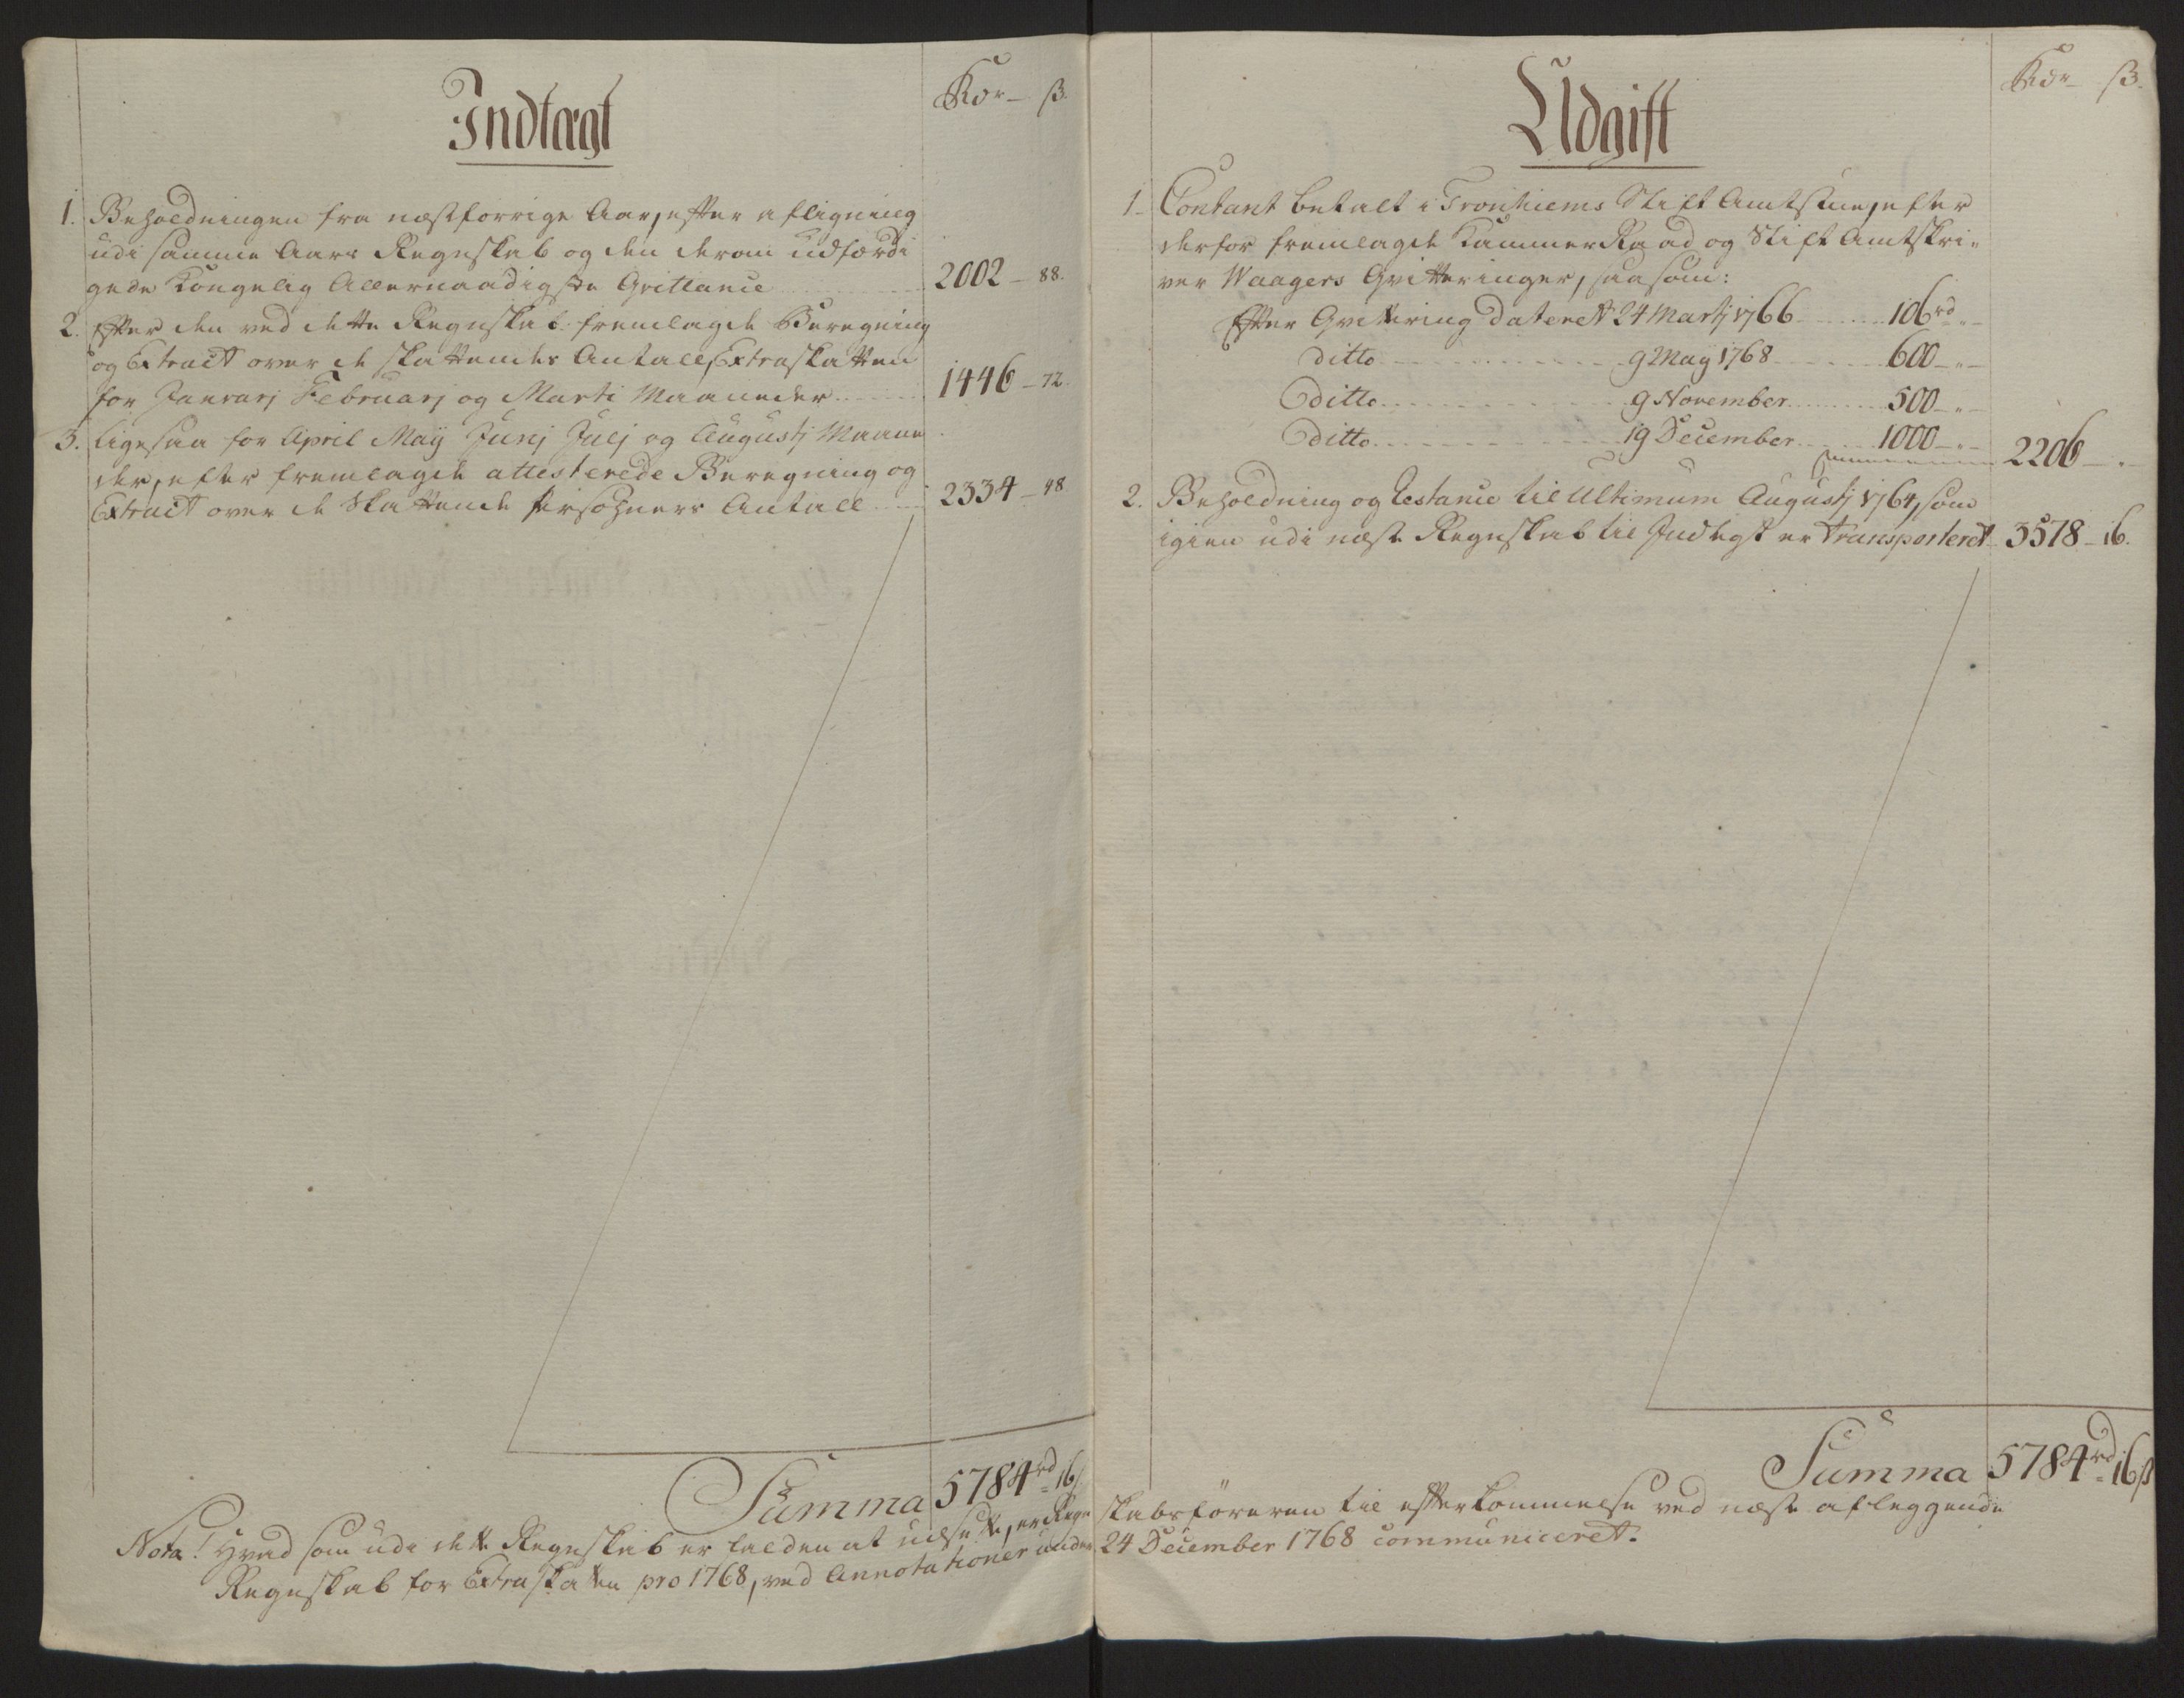 Indtægt
Rdr – ß.
1. Beholdningen fra næstforrige Aar, efter afligning
udi samme Aars Regnskab og den derom udfærdi
gede Kongelig Allernaadigste Qvittance 2002 – 88.
2. Efter den ved dette Regnskab fremlagde Beregning
og Extract over de skattendes Antall, Extraskatten
for Januarj Februarj og Marti Maaneder 1446 – 72.
3. Ligesaa for April Maÿ Junj Julj og Augustj Maane
der, efter fremlagde attesterede Beregning og
Extract over de Skattende Persohners Antall 2334 – 48
Summa 5784 rd 16 ß
Udgift
Rdr – ß.
1. Contant betalt i Tronhiems Stift Amtstue, efter
derfor fremlagde Kammer Raad og Stift Amtskri-
ver Waagers Qvitteringer, saasom:
Efter Qvittering dateret 24 Martj 1766 106 rd „ –
ditto 9 Maÿ 1768 600 – „ –
ditto 9 November 500 – „ –
ditto 19 December 1000 – „ – 2206 – „ –
2. Beholdning og Restance til Ultimum Augustj 1764, som
igien udi næste Regnskab til Indtegt er transporteret 3578 – 16.
Summa 5784 rd 16 ß
Nota! Hvad som udi dette Regnskab er falden at udsette, er Regnskabsføreren til efterkommelse ved næste afleggende
Regnskab for Extraskatten pro 1768, ved Annotationer under 24 December 1768 communiceret.